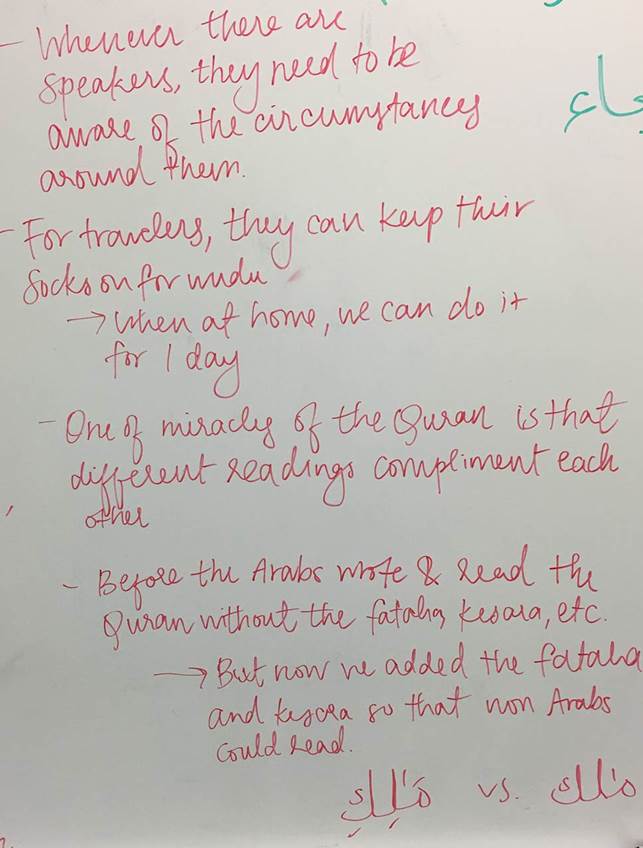 - Whenever there are
speakers, they need to be
aware of the circumstances
around them.
- For travelers, they can keep their
socks on for wudu
→ When at home, we can do it
for 1 day
- One of miracles of the Quran is that
different readings compliment each
other
- Before the Arabs wrote & read the
Quran without the fataha, kesara, etc.
→ But now we added the fataha
and kescra so that non Arabs
could read.
مَٰلِكِ vs. مٰلك